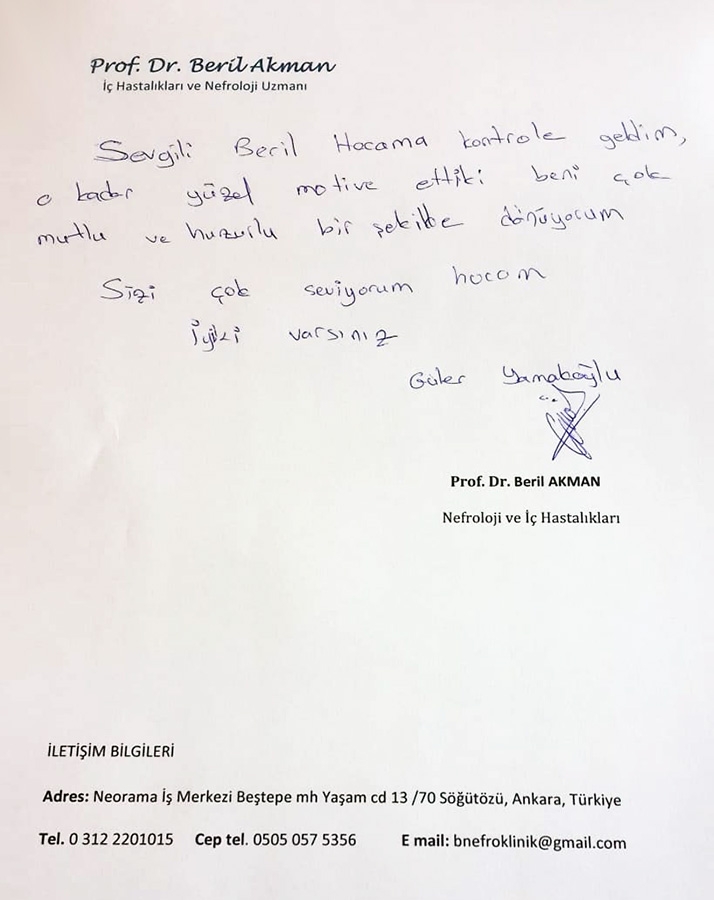 Prof. Dr. Beril Akman
İç Hastalıkları ve Nefroloji Uzmanı
Sevgili Beril Hocama kontrole geldim,
o kadar yüzel motive ettiki beni çok
mutlu ve huzurlu bir şekilbe dönüyorum
Sizi çok seviyorum hocam
İyiki varsınız
Güler Yamakoğlu
Prof. Dr. Beril AKMAN
Nefroloji ve İç Hastalıkları
İLETİŞİM BİLGİLERİ
Adres: Neorama İş Merkezi Beştepe mh Yaşam cd 13 /70 Söğütözü, Ankara, Türkiye
Tel. 0 312 2201015 Cep tel. 0505 057 5356 E mail: bnefroklinik@gmail.com